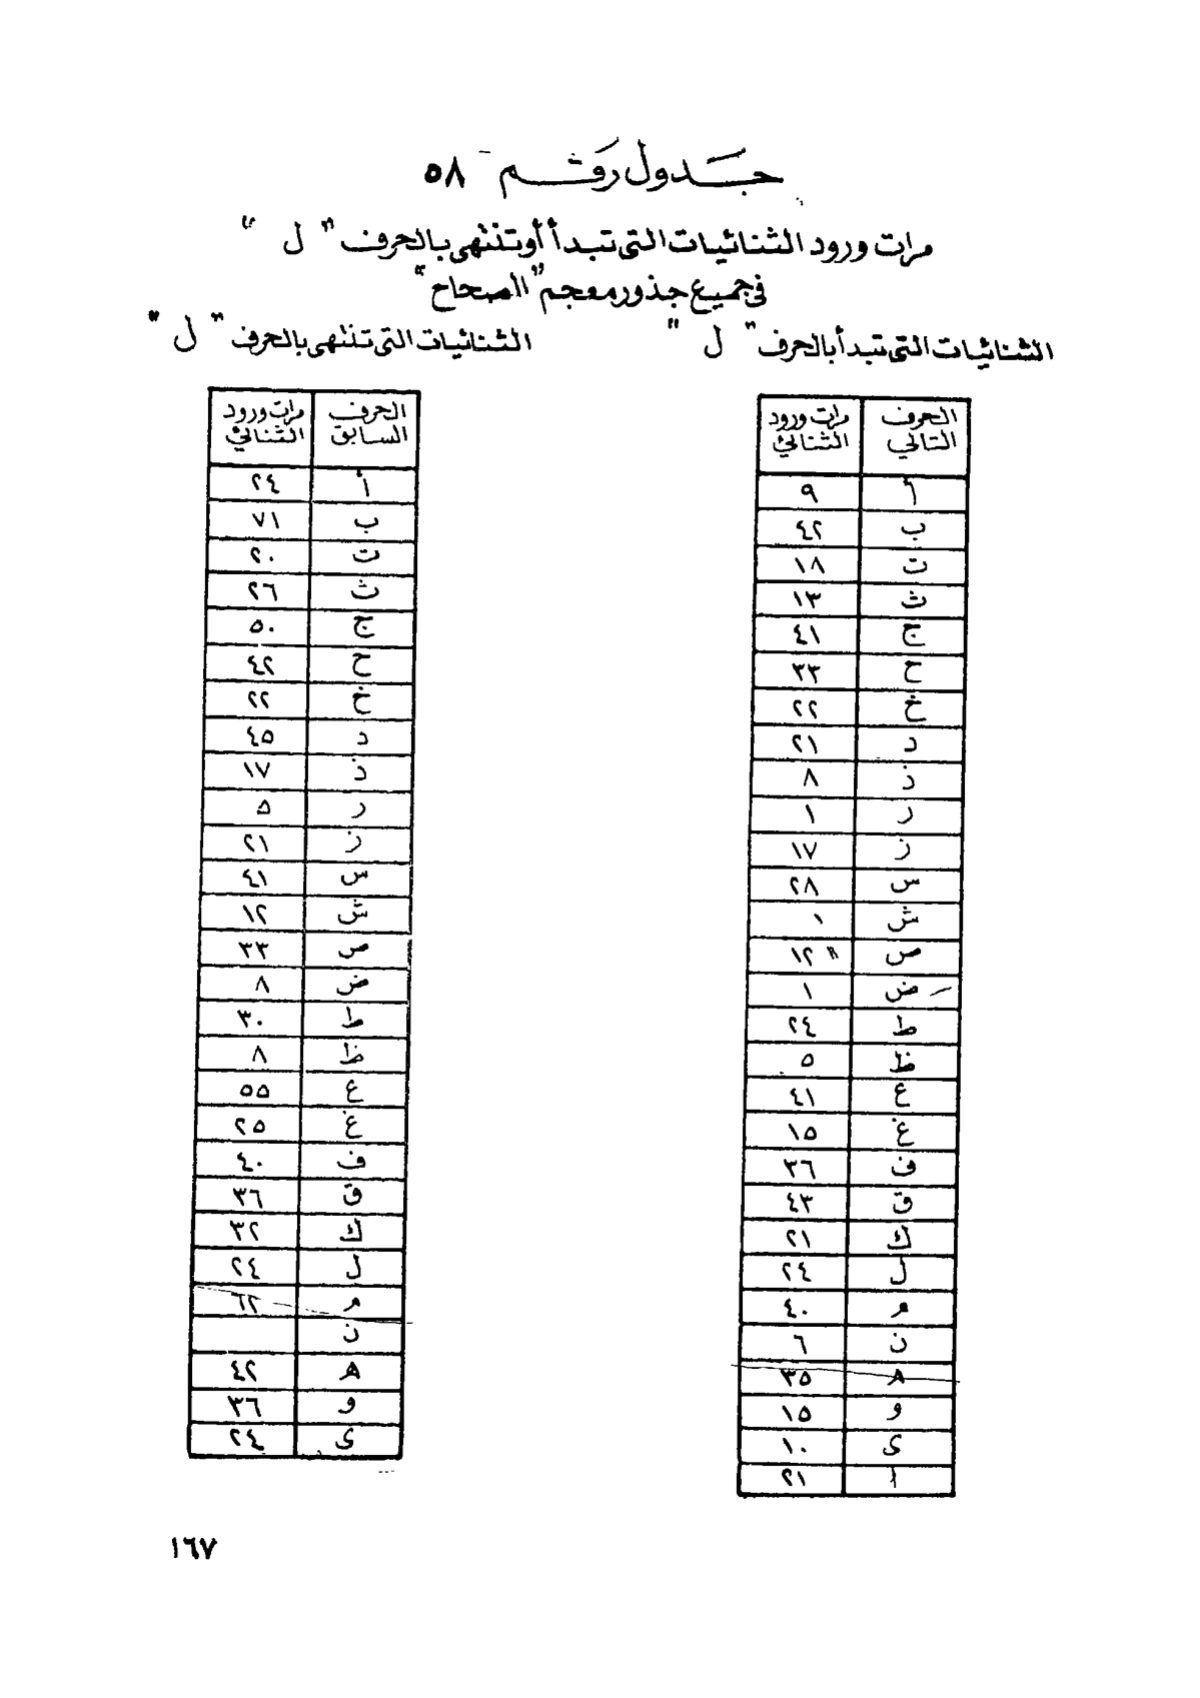 جدول رقم ٥٨
مرات ورود الثنائيات التى تبدأ أو تنتهى بالحرف " ل "
في جميع جذور معجم "الصحاح"
الثنائيات التى تبدأ بالحرف " ل "
الحرف التالي | مرات ورود الثنائي
أ | ٩
ب | ٤٢
ت | ١٨
ث | ١٣
ج | ٤١
ح | ٣٣
خ | ٢٢
د | ٢١
ذ | ٨
ر | ١
ز | ١٧
س | ٢٨
ش | ١
ص | ١٢
ض | ١
ط | ٢٤
ظ | ٥
ع | ٤١
غ | ١٥
ف | ٣٦
ق | ٤٣
ك | ٢١
ل | ٢٤
م | ٤٠
ن | ٦
ه | ٣٥
و | ١٥
ى | ١٠
ا | ٢١
الثنائيات التى تنتهى بالحرف " ل "
الحرف السابق | مرات ورود الثنائي
أ | ٢٤
ب | ٧١
ت | ٢٠
ث | ٢٦
ج | ٥٠
ح | ٤٢
خ | ٢٢
د | ٤٥
ذ | ١٧
ر | ٥
ز | ٢١
س | ٤١
ش | ١٢
ص | ٣٣
ض | ٨
ط | ٣٠
ظ | ٨
ع | ٥٥
غ | ٢٥
ف | ٤٠
ق | ٣٦
ك | ٣٢
ل | ٢٤
م | ٦٢
ن |
ه | ٤٢
و | ٣٦
ى | ٢٤
١٦٧